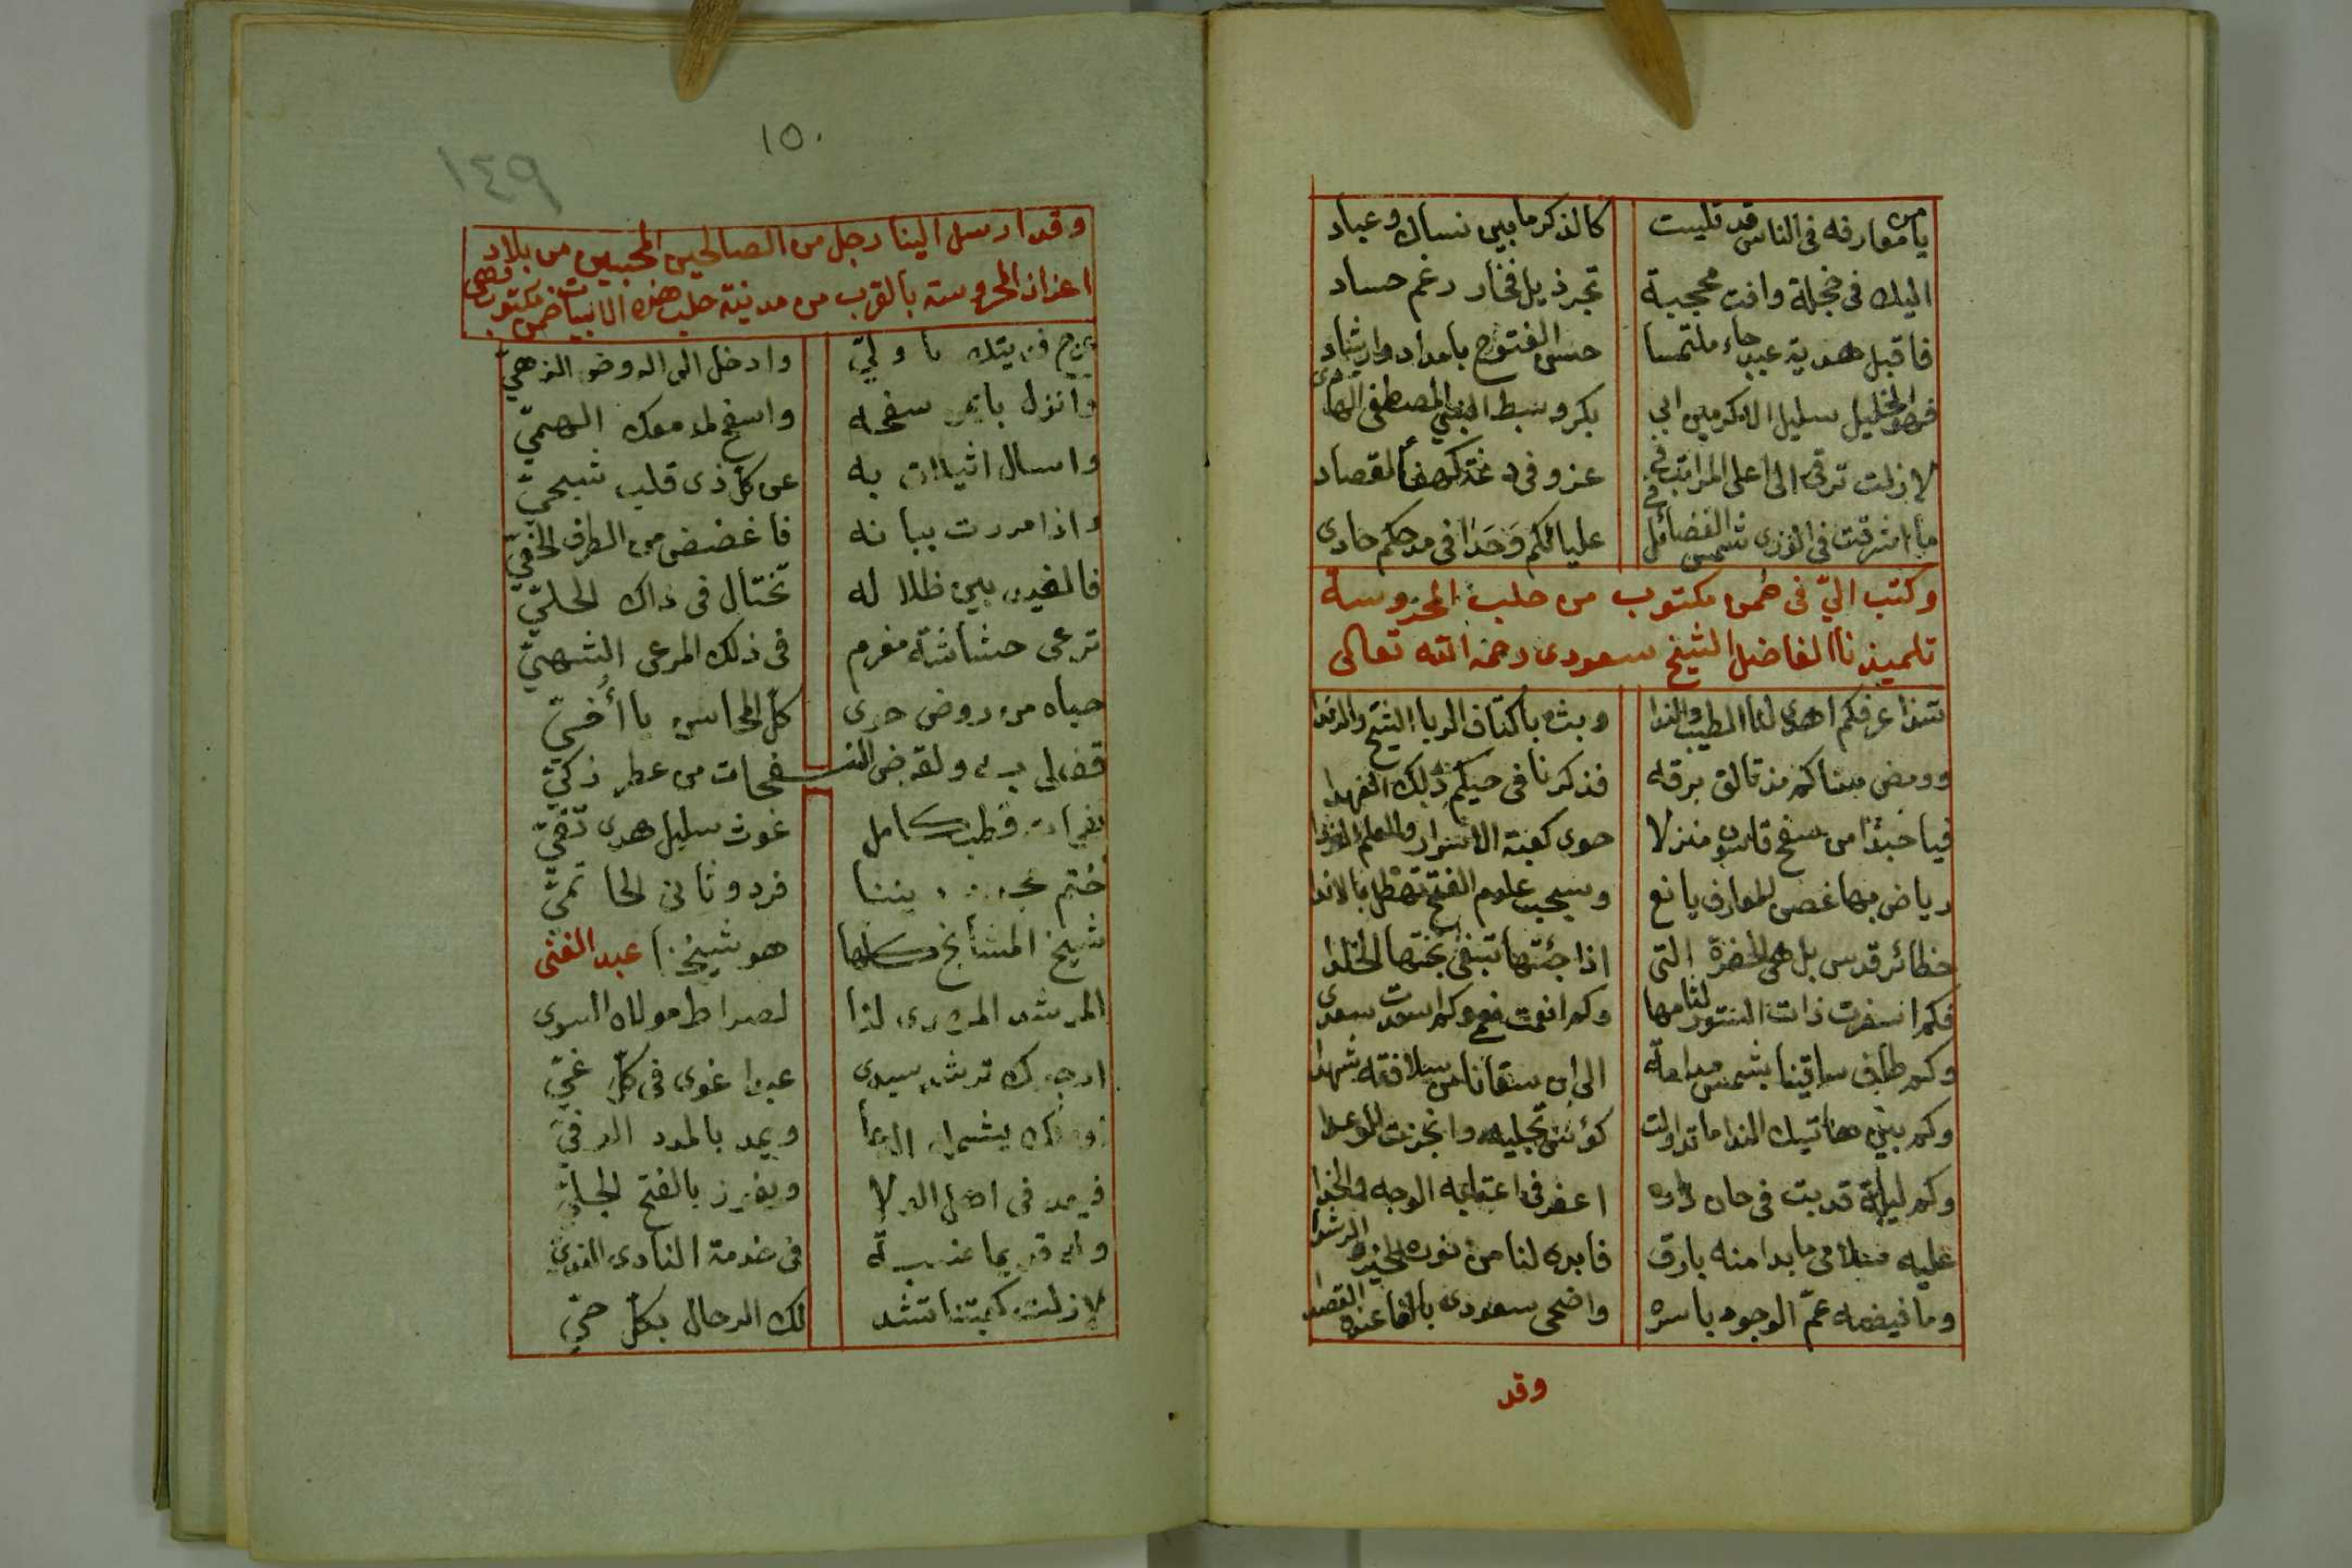 يا من معارفه في الناس قد تليت كالذكر ما بين نساك وعباد
اليك في خجلة وافت محجبة تجر ذيل فخار رغم حساد
فاقبل هدية عبد جاء ملتمسا حسن الفتوح بامداد وارشاد
فهو الخليل سليل الاكرمين ابي بكر وسبط النبي المصطفى الهادى
لا زلت ترقى الى اعلى المراتب في عز وفي دعة كهفا لقصاد
ما اشرقت في الورى شمس الفضائل في عليا لكم وحدا في مدحكم حادى
وكتب اليّ في ضمن مكتوب من حلب المحروسة
تلميذنا الفاضل الشيخ سعودى رحمه الله تعالى
شذا عرفكم اهدى لنا الطيب والندا وبث باكناف الربا الشيح والرندا
وومض سناكم مذ تالق برقه فذكرنا في حيكم ذلك العهدا
فيا حبذا من سفح قاسيون منزلا حوى كعبة الاسرار والعلم
رياض بها غصن المعارف يانع وسحب علوم الفتح تهطل بالاندا
حظائر قدس بل هي الحضرة التى اذا جئتها تبغى بجنتها الخلدا
فكم اسفرت ذات الستور لثامها وكم انعمت نعم وكم اسعدت سعدى
وكم طاف ساقينا بشمس مدامة الى ان سقانا من سلافته شهدا
وكم بين هاتيك الندامى تداولت كؤس تجليه وانجزت الوعدا
وكم ليلة قد بت في حان اعفر في اعتابه الوجه والخدا
عليه سلامى ما بدا منه بارق فابدى لنا من نوره الرشدا
وما فيضه عمّ الوجود باسره واضحى سعودى بالغا عنده القصدا
وقد
١٥٠
١٤٩
وقد ارسل الينا رجل من الصالحين المحبين من بلاد
اعزاز المحروسة بالقرب من مدينة حلب هذه الابيات ضمن مكتوب وهى
عج فديتك يا وليّ وادخل الى الروض الزهيّ
وانزل بايمن سفحه واسفح لدمعك الهميّ
واسال اثيلات به عن كل ذى قلب شجيّ
واذا مررت ببانه فاغضض من الطرف الخفيّ
فالغيد بين ظلاله تختال في ذاك الحليّ
ترعى حشاشة مغرم في ذلك المرعى الشهيّ
حياه من روض حوى كل المحاسن يا أخيّ
النفحات من عطر ذكيّ
قطب كامل غوث سليل هدى تقيّ
ختم فرد وثانى الحاتميّ
شيخ المشايخ كلها هو شيخنا عبد الغنى
المرشد المهدى لنا لصراط مولاه السوى
ارجوك ترشد سيدى عبدا غوى في كل غيّ
ويمد بالمدد الوفيّ
فيعد في اهل الولا ويفوز بالفتح الجليّ
في خدمة النادى الندىّ
لا زلت كعبتنا تشد لك الرحال بكل حيّ